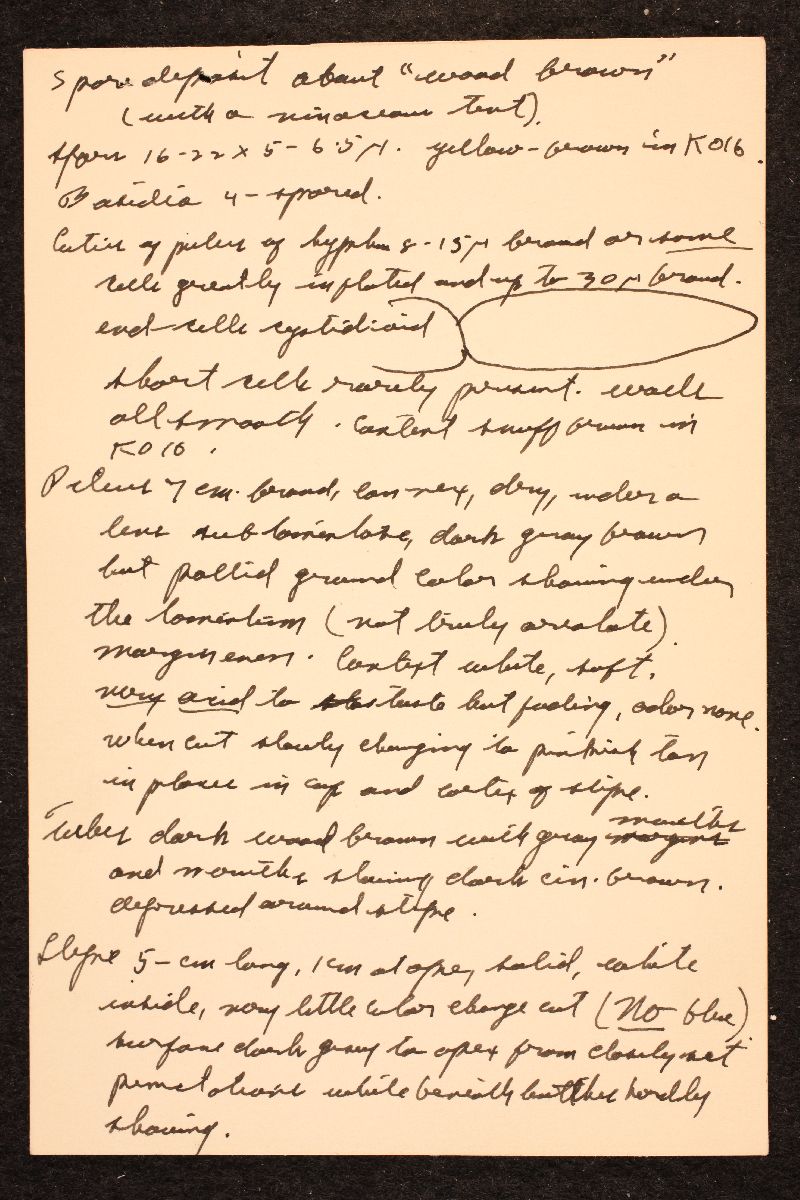 Spore deposit about "wood brown"
(with a vinaceous tint).
Spores 16-22 x 5-6.5 μ. yellow-brown in KOH.
Basidia 4-spored.
Cutis of pileus of hyphae 8-15 μ broad or some
cells greatly inflated and up to 30 μ broad.
end-cells cystidioid
short cells rarely present. walls
all smooth. Content snuff brown in
KOH.
Pileus 7 cm. broad, convex, dry, under a
lens subtomentose, dark gray brown
but pallid ground color showing under
the tomentum (not truly areolate)
margin even. Context white, soft,
very acid to taste but fading, odor none.
when cut slowly changing to pinkish tan
in places in cap and cortex of stipe.
Tubes dark wood brown with gray mouths
and mouths staining dark cin. brown.
depressed around stipe.
Stipe 5-cm long, 1 cm at apex, solid, white
inside, very little color change cut (No blue)
surface dark gray to apex from closely set
punctations white beneath but hardly
showing.